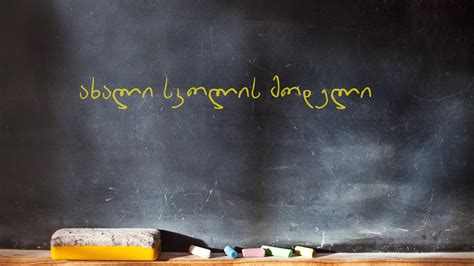 ახალი სკოლის მოდელი